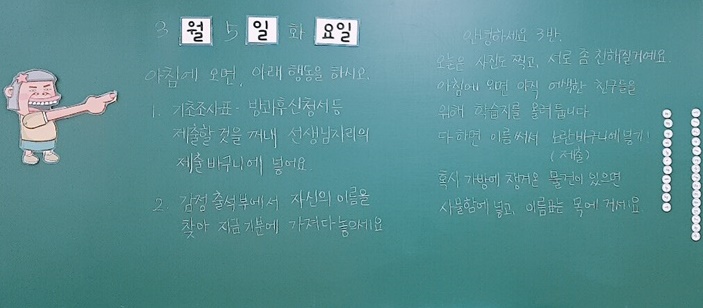 3 월 5 일 화 요일
아침에 오면, 아래 행동을 하시오.
1. 기초조사표 · 방과후신청서 등
제출할 것을 꺼내 선생님자리의
제출바구니에 넣어요
2. 감정 출석부에서 자신의 이름을
찾아 지금 기분에 가져다 놓으세요
안녕하세요 3반.
오늘은 사진도 찍고, 서로 좀 친해질거에요.
아침에 오면 아직 어색한 친구들을
위해 학습지를 올려둡니다
다하면 이름써서 노란바구니에 넣기!
(제출)
혹시 가방에 챙겨온 물건이 있으면
사물함에 넣고, 이름표는 목에 거세요